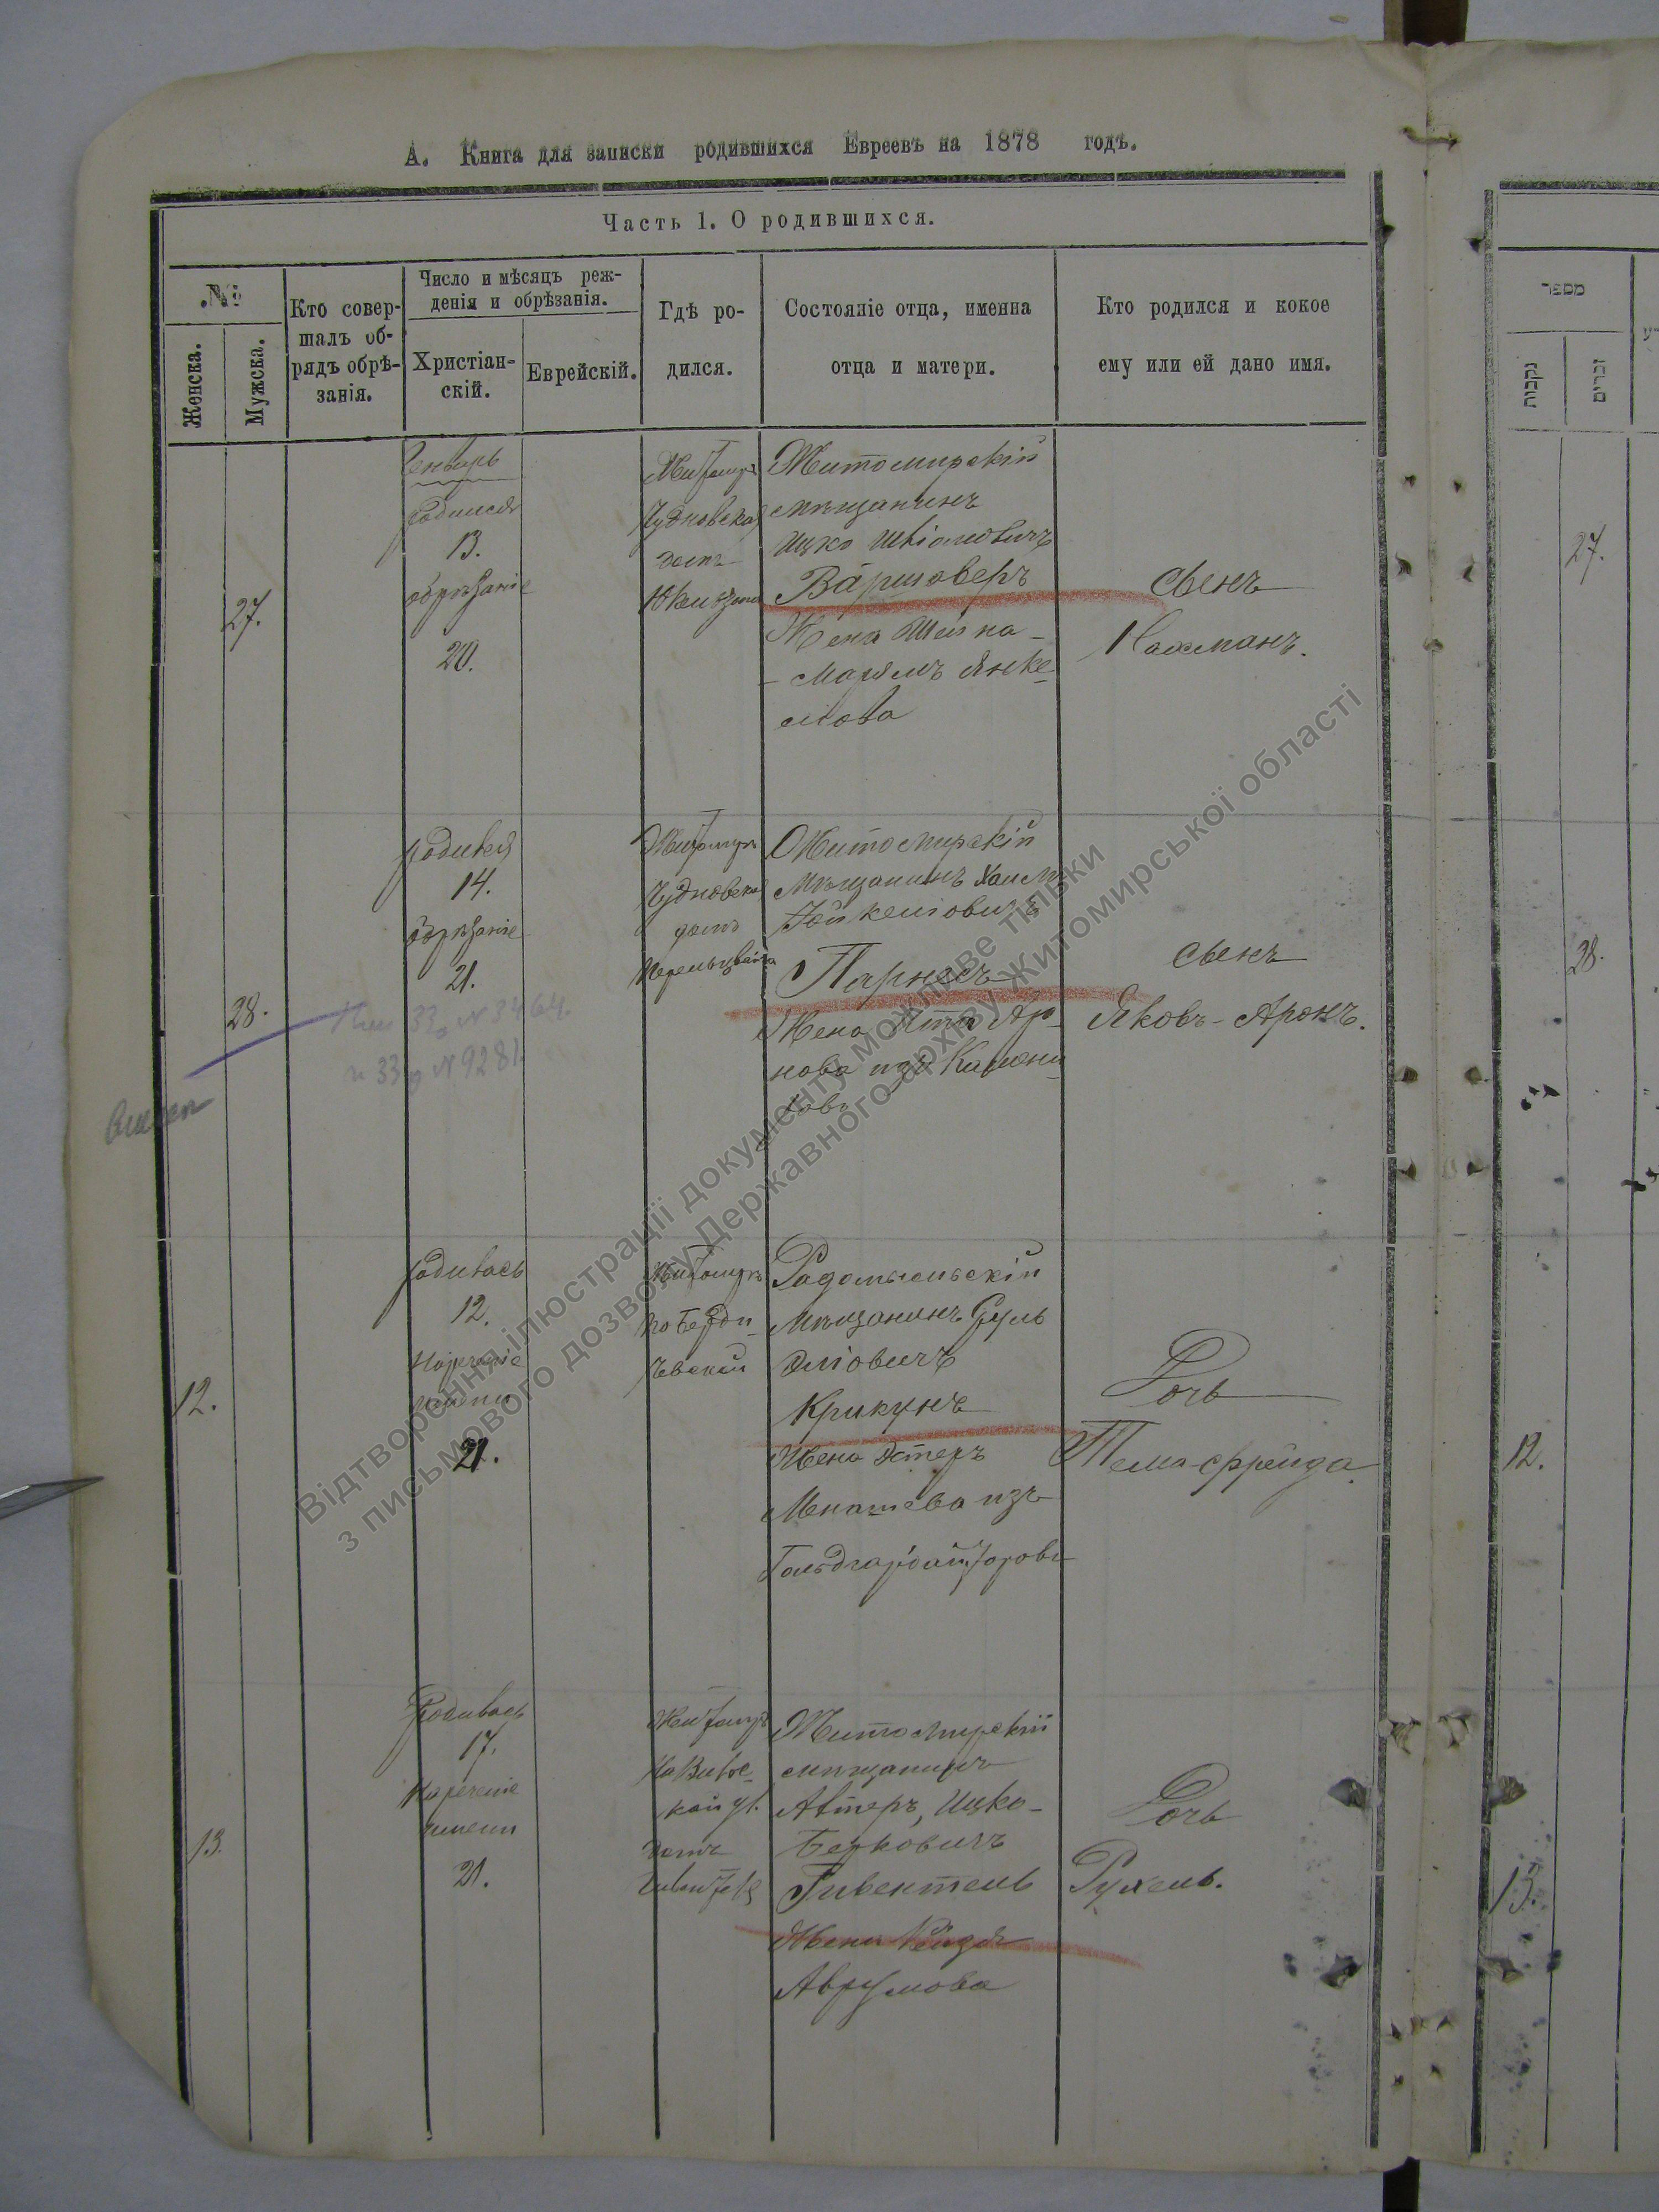 А. Книга для записки родившихся Евреевъ на 1878 годъ.
Часть 1. О родившихся.
№
Женска.
Мужска.
Кто совер-
шалъ об-
рядъ обрѣ-
занія.
Число и мѣсяцъ реж-
денія и обрѣзанія.
Христіан-
скій.
Еврейскій.
Гдѣ ро-
дился.
Состояніе отца, именна
отца и матери.
Кто родился и кокое
ему или ей дано имя.
מספר
נקבות
זכרים
27.
Генварь
родился
13.
обрѣзаніе
20.
Житомиръ
Чудновская
домъ
Житомирскій
мѣщанинъ
Ицко
Варшаверъ
Жена Шейна-
Марямъ Янке-
лова
сынъ
Нахманъ.
27.
28.
родился
14.
обрѣзаніе
21.
33 № 3464.
и 33 № 9281.
Житомиръ
Чудновская
домъ
Перельцвейга
Житомирскій
Мѣщанинъ Хаимъ
Парнесъ
Жена
нова изъ
сынъ
Яковъ-Аронъ.
28.
12.
родилась
12.
Нареченіе
имени
21.
Житомиръ
по Берди-
чевской
Радомысльскій
Мѣщанинъ Сруль
Крикунъ
Жена Эстеръ
Менашева изъ
Дочь
Тема-Фрейда.
12.
13.
Родилась
17.
Нареченіе
имени
21.
Житомиръ
На Вильс-
кой ул.
домъ
Житомирскій
мѣщанинъ
Алтеръ, Ицко-
Берковичъ
Гивентель
Жена Рейзя
Аврумова
Дочь
Рухель.
13.
Відтворення ілюстрації документу можливе тільки
з письмового дозволу Державного архіву Житомирської області